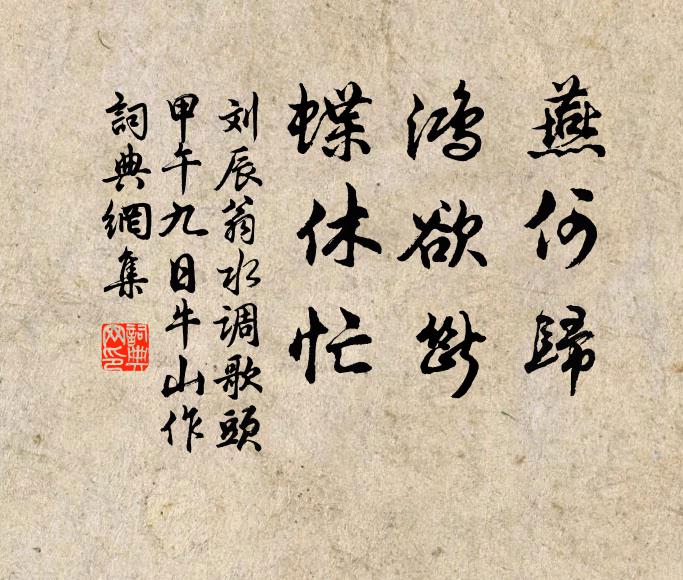 燕何歸
鸿欲断
蝶休忙
刘辰翁水调歌頭
甲午九日牛山作
詞典網集
詞典
网印